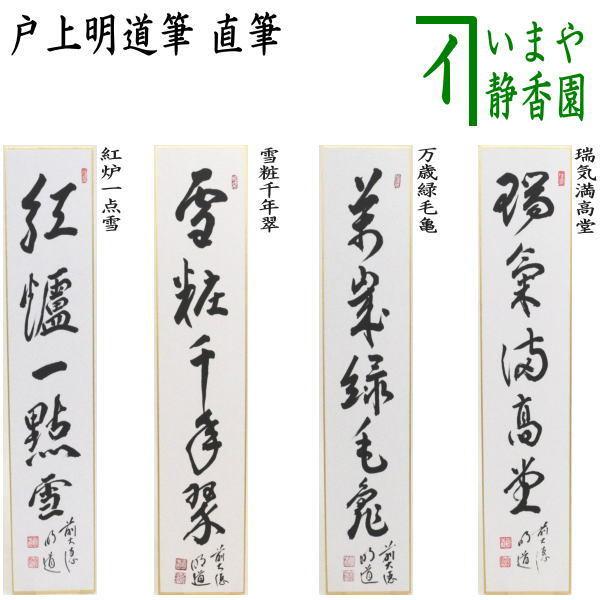 戸上明道筆 直筆
いまや
静香園
紅炉一点雪
紅爐一點雪
前大徳
明道
雪粧千年翠
雪粧千年翠
前大徳
明道
万歳緑毛亀
萬歳緑毛亀
前大徳
明道
瑞気満高堂
瑞氣満高堂
前大徳
明道